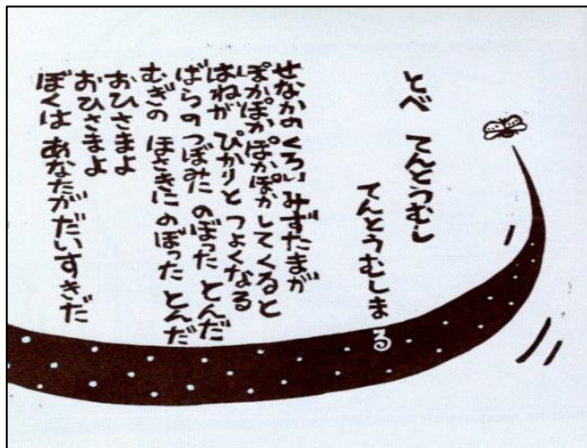 とべ てんとうむし
てんとうむしまる
せなかの くろい みずたまが
ぽかぽか ぽかぽかしてくると
はねが ぴかりと つよくなる
ばらの つぼみに のぼった とんだ
むぎの ほさきに のぼった とんだ
おひさまよ
おひさまよ
ぼくは あなたが だいすきだ